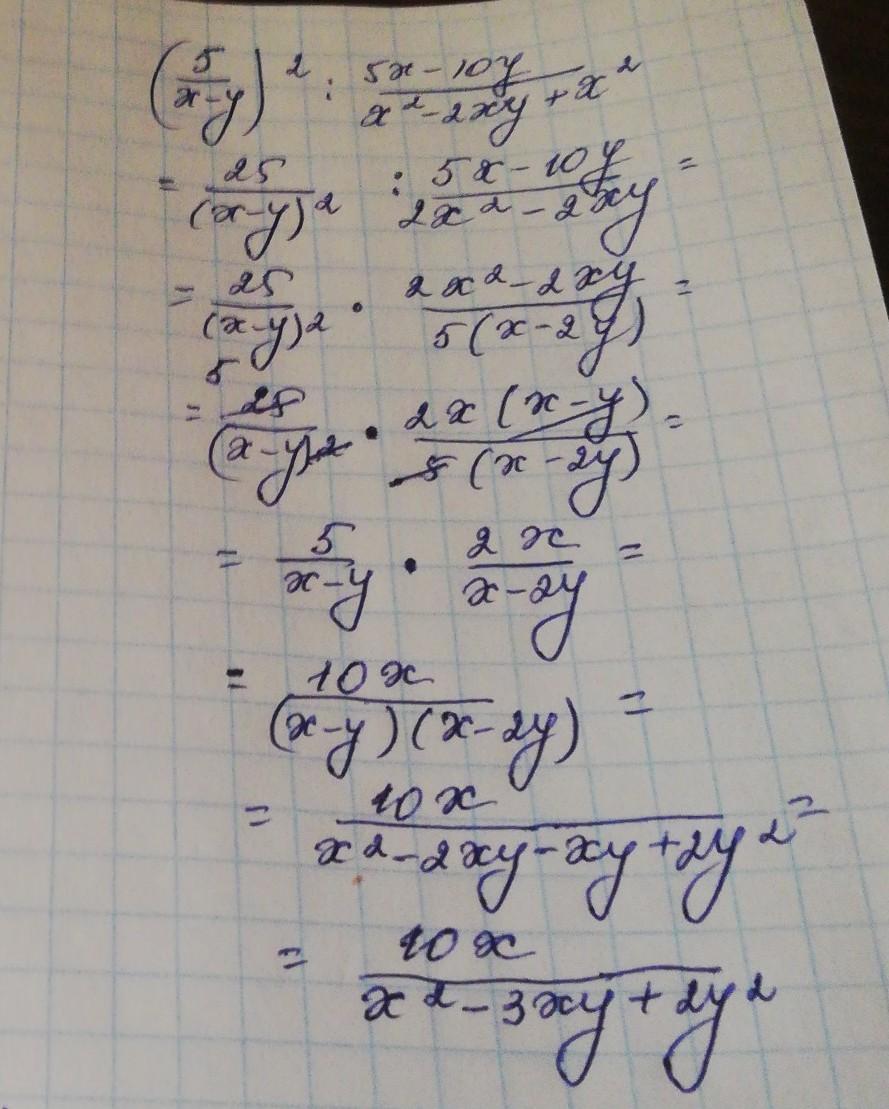 (5/(x-y))² : (5x-10y)/(x²-2xy+x²)
= 25/(x-y)² : (5x-10y)/(2x²-2xy) =
= 25/(x-y)² · (2x²-2xy)/(5(x-2y)) =
5
= 25/(x-y)² · (2x(x-y))/(5(x-2y)) =
= 5/(x-y) · 2x/(x-2y) =
= 10x/((x-y)(x-2y)) =
= 10x/(x²-2xy-xy+2y²) =
= 10x/(x²-3xy+2y²)